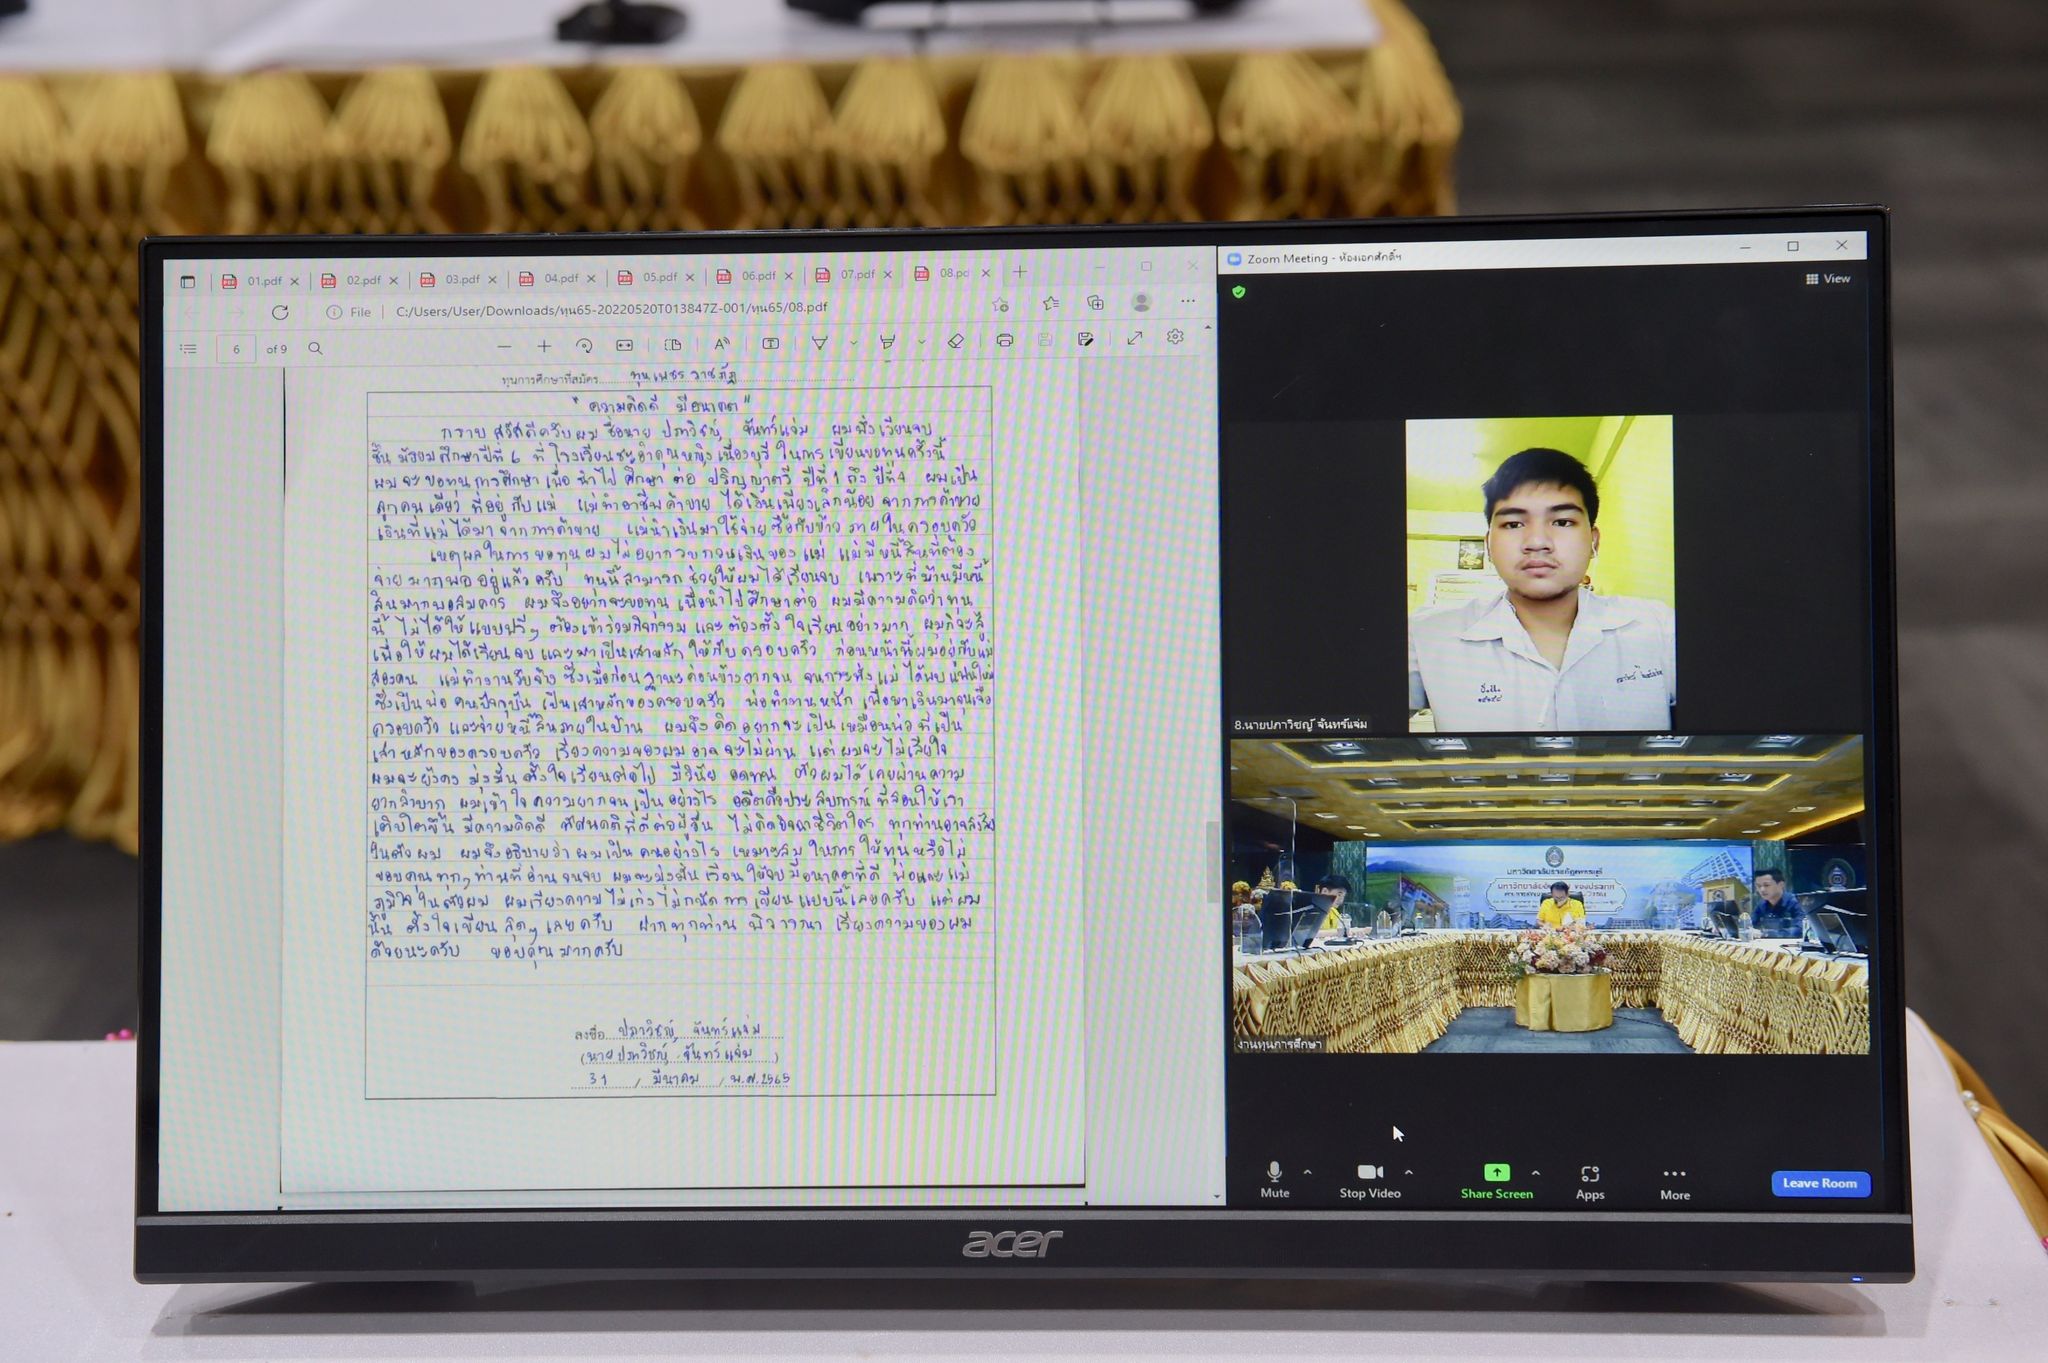 01.pdf 02.pdf 03.pdf 04.pdf 05.pdf 06.pdf 07.pdf 08.pd
File C:/Users/User/Downloads/ทุน65-20220520T013847Z-001/ทุน65/08.pdf
6 of 9
ทุนการศึกษาที่สมัคร ทุนเพชรราชภัฏ
"ความคิดดี มีอนาคต"
กราบสวัสดีครับผมชื่อนาย ปภาวิชญ์ จันทร์แจ่ม ผมพึ่งเรียนจบ
ชั้นมัธยมศึกษาปีที่ 6 ที่โรงเรียนชะอำคุณหญิงเนื่องบุรี ในการเขียนขอทุนครั้งนี้
ผมจะขอทุนการศึกษาเพื่อนำไปศึกษาต่อ ปริญญาตรี ปีที่ 1 ถึง ปีที่ 4 ผมเป็น
ลูกคนเดียว ที่อยู่กับแม่ แม่ทำอาชีพค้าขาย ได้เงินเพียงเล็กน้อย จากการค้าขาย
เงินที่แม่ได้มาจากการค้าขาย แม่นำเงินมาใช้จ่ายซื้อกับข้าว ภายในครอบครัว
เหตุผลในการขอทุนผมไม่อยากรบกวนเงินของแม่ แม่มีหนี้สินที่ต้อง
จ่ายมากพออยู่แล้วครับ ทุนนี้สามารถช่วยให้ผมได้เรียนจบ เพราะที่บ้านมีหนี้
สินมากพอสมควร ผมจึงอยากจะขอทุนเพื่อนำไปศึกษาต่อ ผมมีความคิดว่าทุน
นี้ ไม่ได้ให้แบบฟรีๆ ต้องเข้าร่วมกิจกรรม และต้องตั้งใจเรียนอย่างมาก ผมก็จะสู้
เพื่อให้ผมได้เรียนจบและมาเป็นเสาหลักให้กับครอบครัว ก่อนหน้านี้ผมอยู่กับแม่
สองคน แม่ทำงานรับจ้าง ซึ่งเมื่อก่อนฐานะค่อนข้างยากจน จนกระทั่งแม่ได้พบแฟนใหม่
ซึ่งเป็นพ่อคนปัจจุบัน เป็นเสาหลักของครอบครัว พ่อทำงานหนัก เพื่อหาเงินมาจุนเจือ
ครอบครัว และจ่ายหนี้สินภายในบ้าน ผมจึงคิดอยากจะเป็นเหมือนพ่อที่เป็น
เสาหลักของครอบครัว เรียงความของผมอาจจะไม่ผ่าน แต่ผมจะไม่เสียใจ
ผมจะยังคงมุ่งมั่นตั้งใจเรียนต่อไป มีวินัย อดทน ตัวผมได้เคยผ่านความ
ยากลำบาก ผมเข้าใจความยากจนเป็นอย่างไร อดีตคือประสบการณ์ที่สอนให้เรา
เติบโตขึ้น มีความคิดดี ทัศนคติที่ดีต่อผู้อื่น ไม่คิดอิจฉาชีวิตใคร ทุกท่านอาจสงสัย
ในตัวผม ผมจึงอธิบายว่าผมเป็นคนอย่างไร เหมาะสมในการให้ทุนหรือไม่
ขอบคุณทุกๆท่านที่อ่านจนจบ ผมจะมุ่งมั่นเรียนให้จบมีอนาคตที่ดี พ่อและแม่
ภูมิใจในตัวผม ผมเรียงความไม่เก่งไม่ถนัดการเขียนแบบนี้เลยครับ แต่ผม
นั้น ตั้งใจเขียนสุดๆเลยครับ ฝากทุกท่าน พิจารณา เรียงความของผม
ด้วยนะครับ ขอบคุณมากครับ
ลงชื่อ ปภาวิชญ์ จันทร์แจ่ม
(นายปภาวิชญ์ จันทร์แจ่ม)
31 / มีนาคม / พ.ศ.2565
Zoom Meeting - ห้องเอกศักดิ์ฯ
View
ช.น.
8.นายปภาวิชญ์ จันทร์แจ่ม
มหาวิทยาลัยราชภัฏเพชรบุรี
งานทุนการศึกษา
Mute Stop Video Share Screen Apps More Leave Room
acer